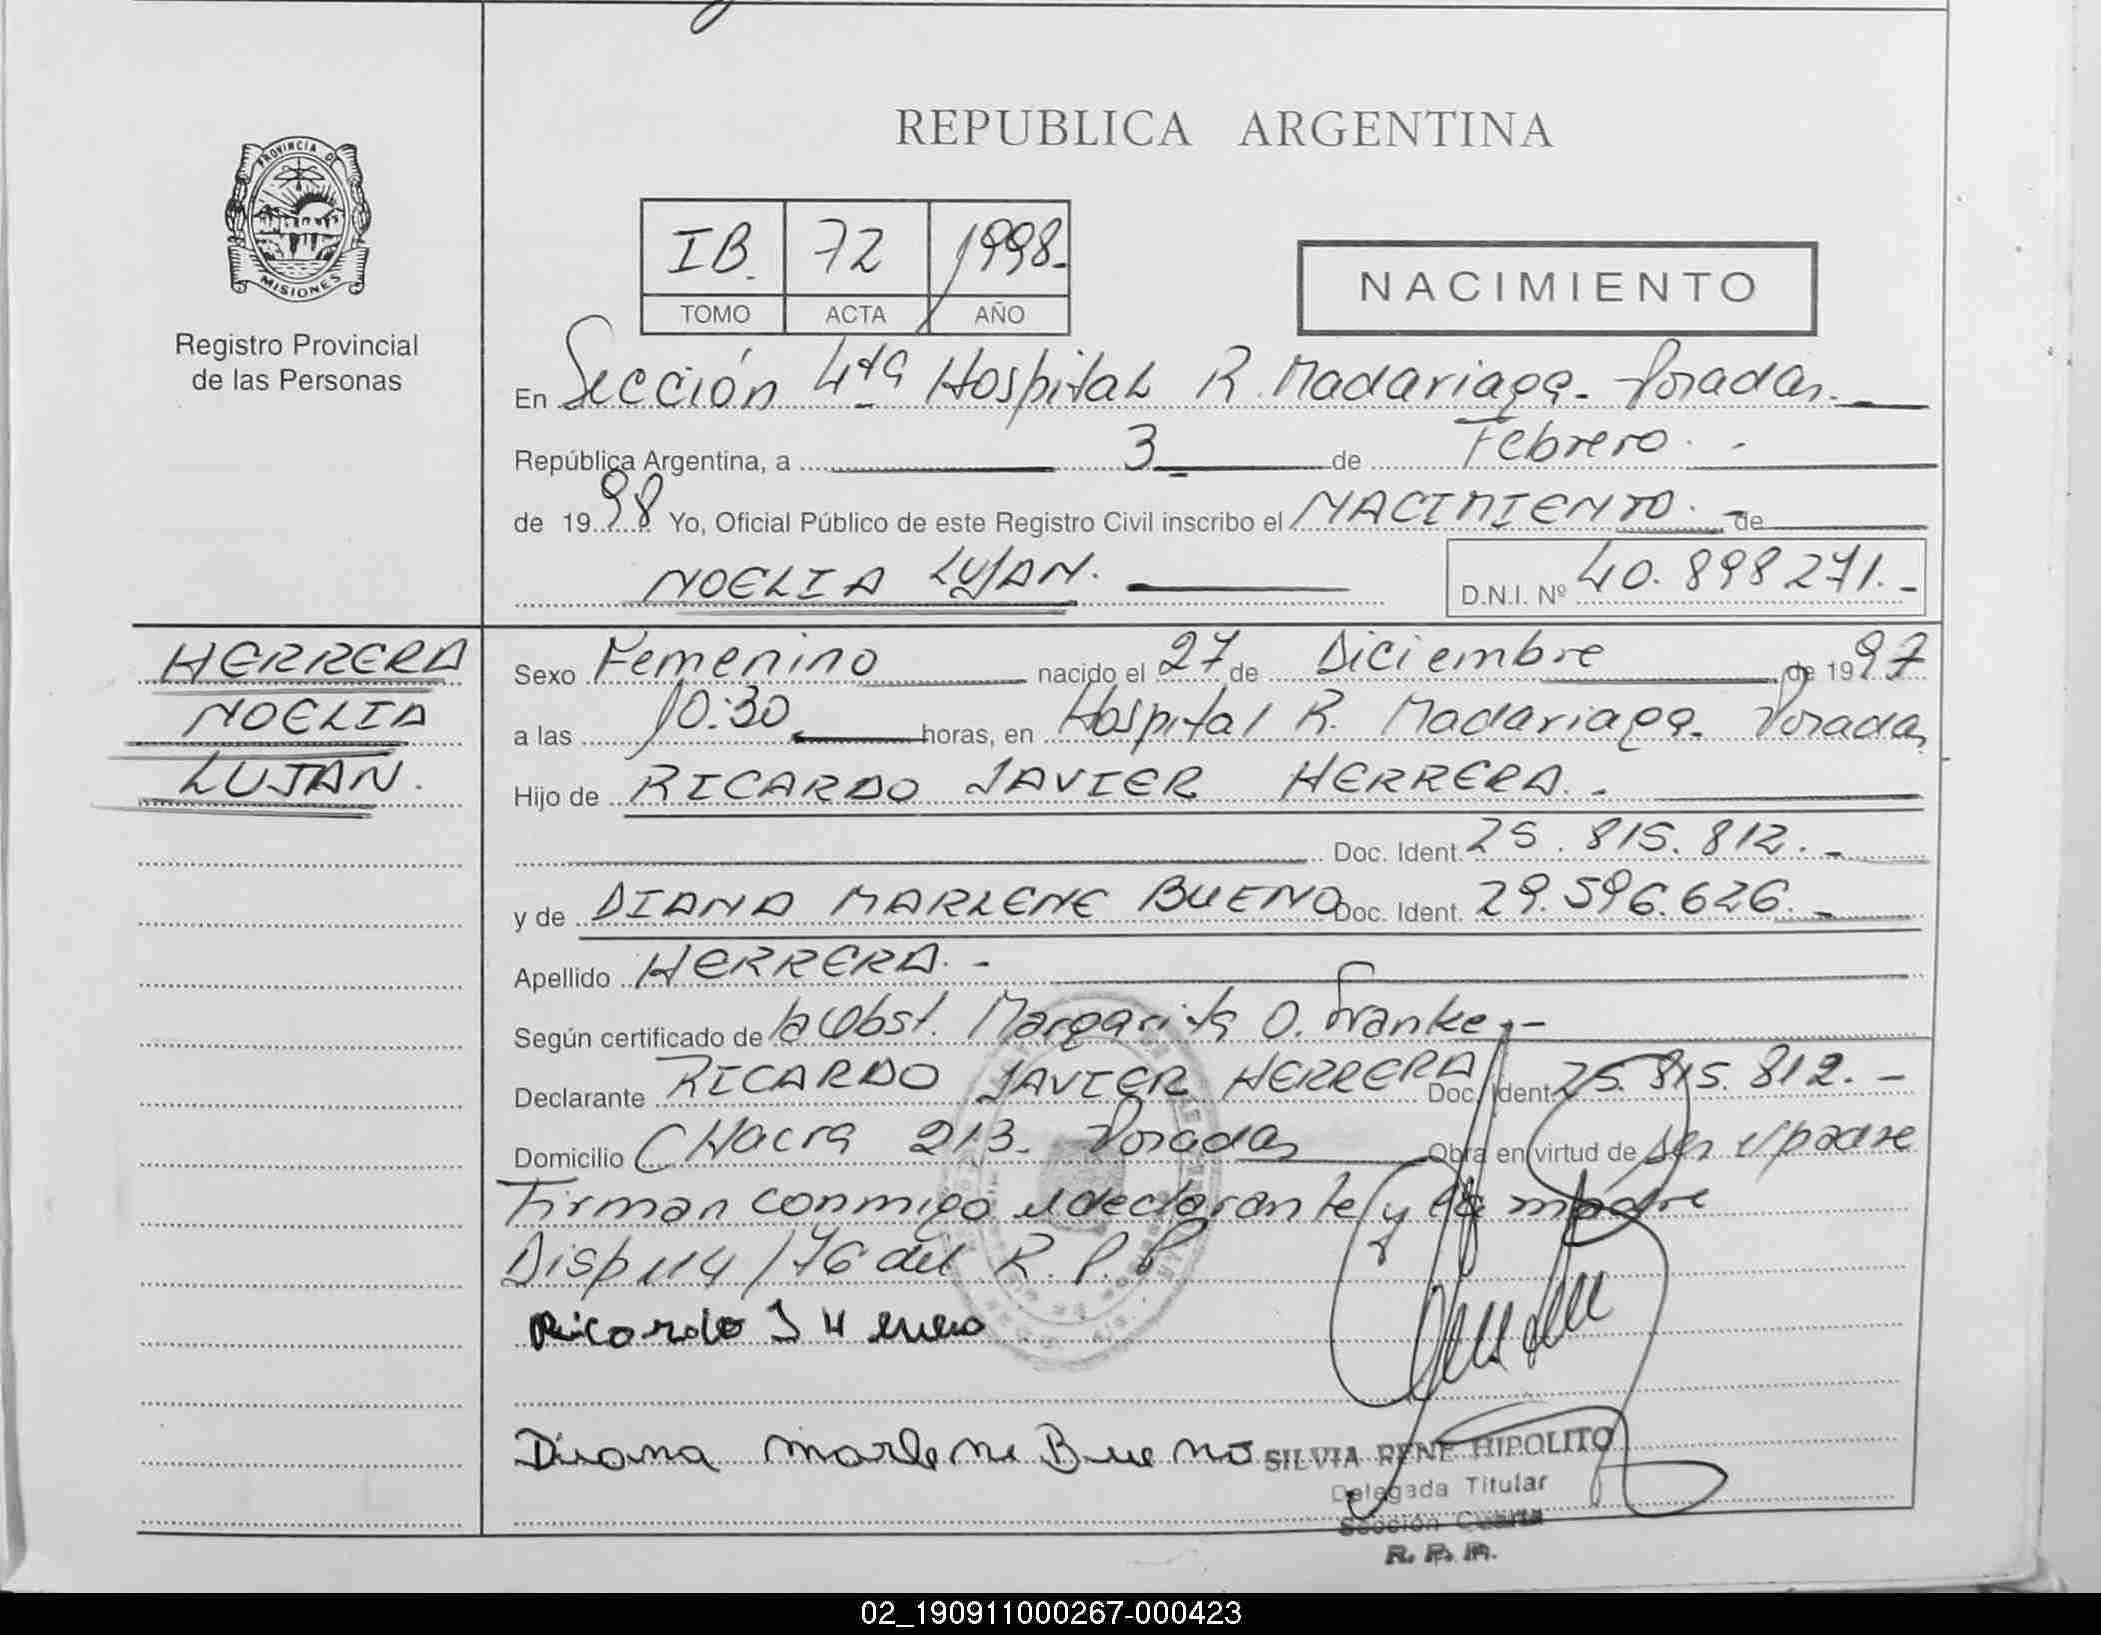 REPUBLICA ARGENTINA
PROVINCIA DE
MISIONES
Registro Provincial
de las Personas
IB. 72 1998.-
TOMO ACTA AÑO
NACIMIENTO
En Sección 4ta Hospital R. Madariaga - Posadas. -
República Argentina, a 3 - de Febrero. -
de 1998 Yo, Oficial Público de este Registro Civil inscribo el NACIMIENTO. - de
NOELIA LUJAN. D.N.I. Nº 40.898271.-
HERRERA
NOELIA
LUJAN.
Sexo Femenino nacido el 27 de Diciembre de 1997
a las 10:30 horas, en Hospital R. Madariaga - Posadas
Hijo de RICARDO JAVIER HERRERA. -
Doc. Ident. 25.815.812. -
y de DIANA MARLENE BUENO Doc. Ident. 29.596.626. -
Apellido HERRERA. -
Según certificado de la Obst. Margarita O. Franke, -
Declarante RICARDO JAVIER HERRERA Doc. Ident. 25.815.812. -
Domicilio CHacra 213. Posadas Obra en virtud de ser el padre
Firman conmigo el declarante y la madre
Disp 114/76 del R. P. P
Ricardo J H
Diana Marlene Bueno
SILVIA RENE HIPOLITO
Delegada Titular
Sección Cuarta
R. P. P.
02_190911000267-000423